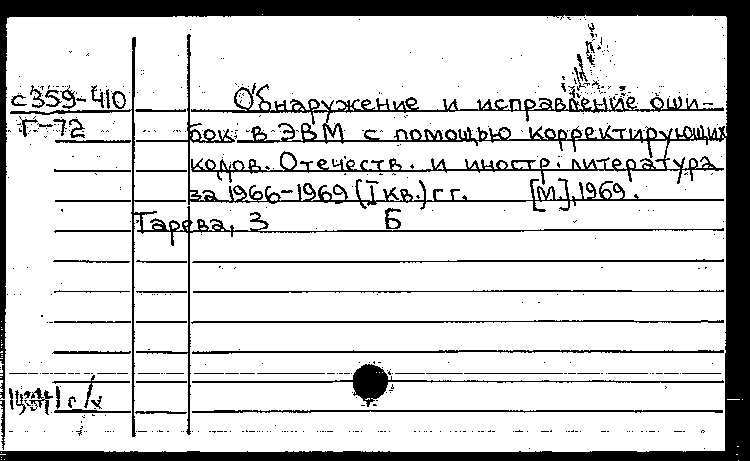 с359-410
Г-72
Обнаружение и исправление оши-
бок в ЭВМ с помощью корректирующих
кодов. Отечеств. и иностр. литература
за 1966-1969 (I кв.) гг. [М.], 1969.
Тарева, З Б